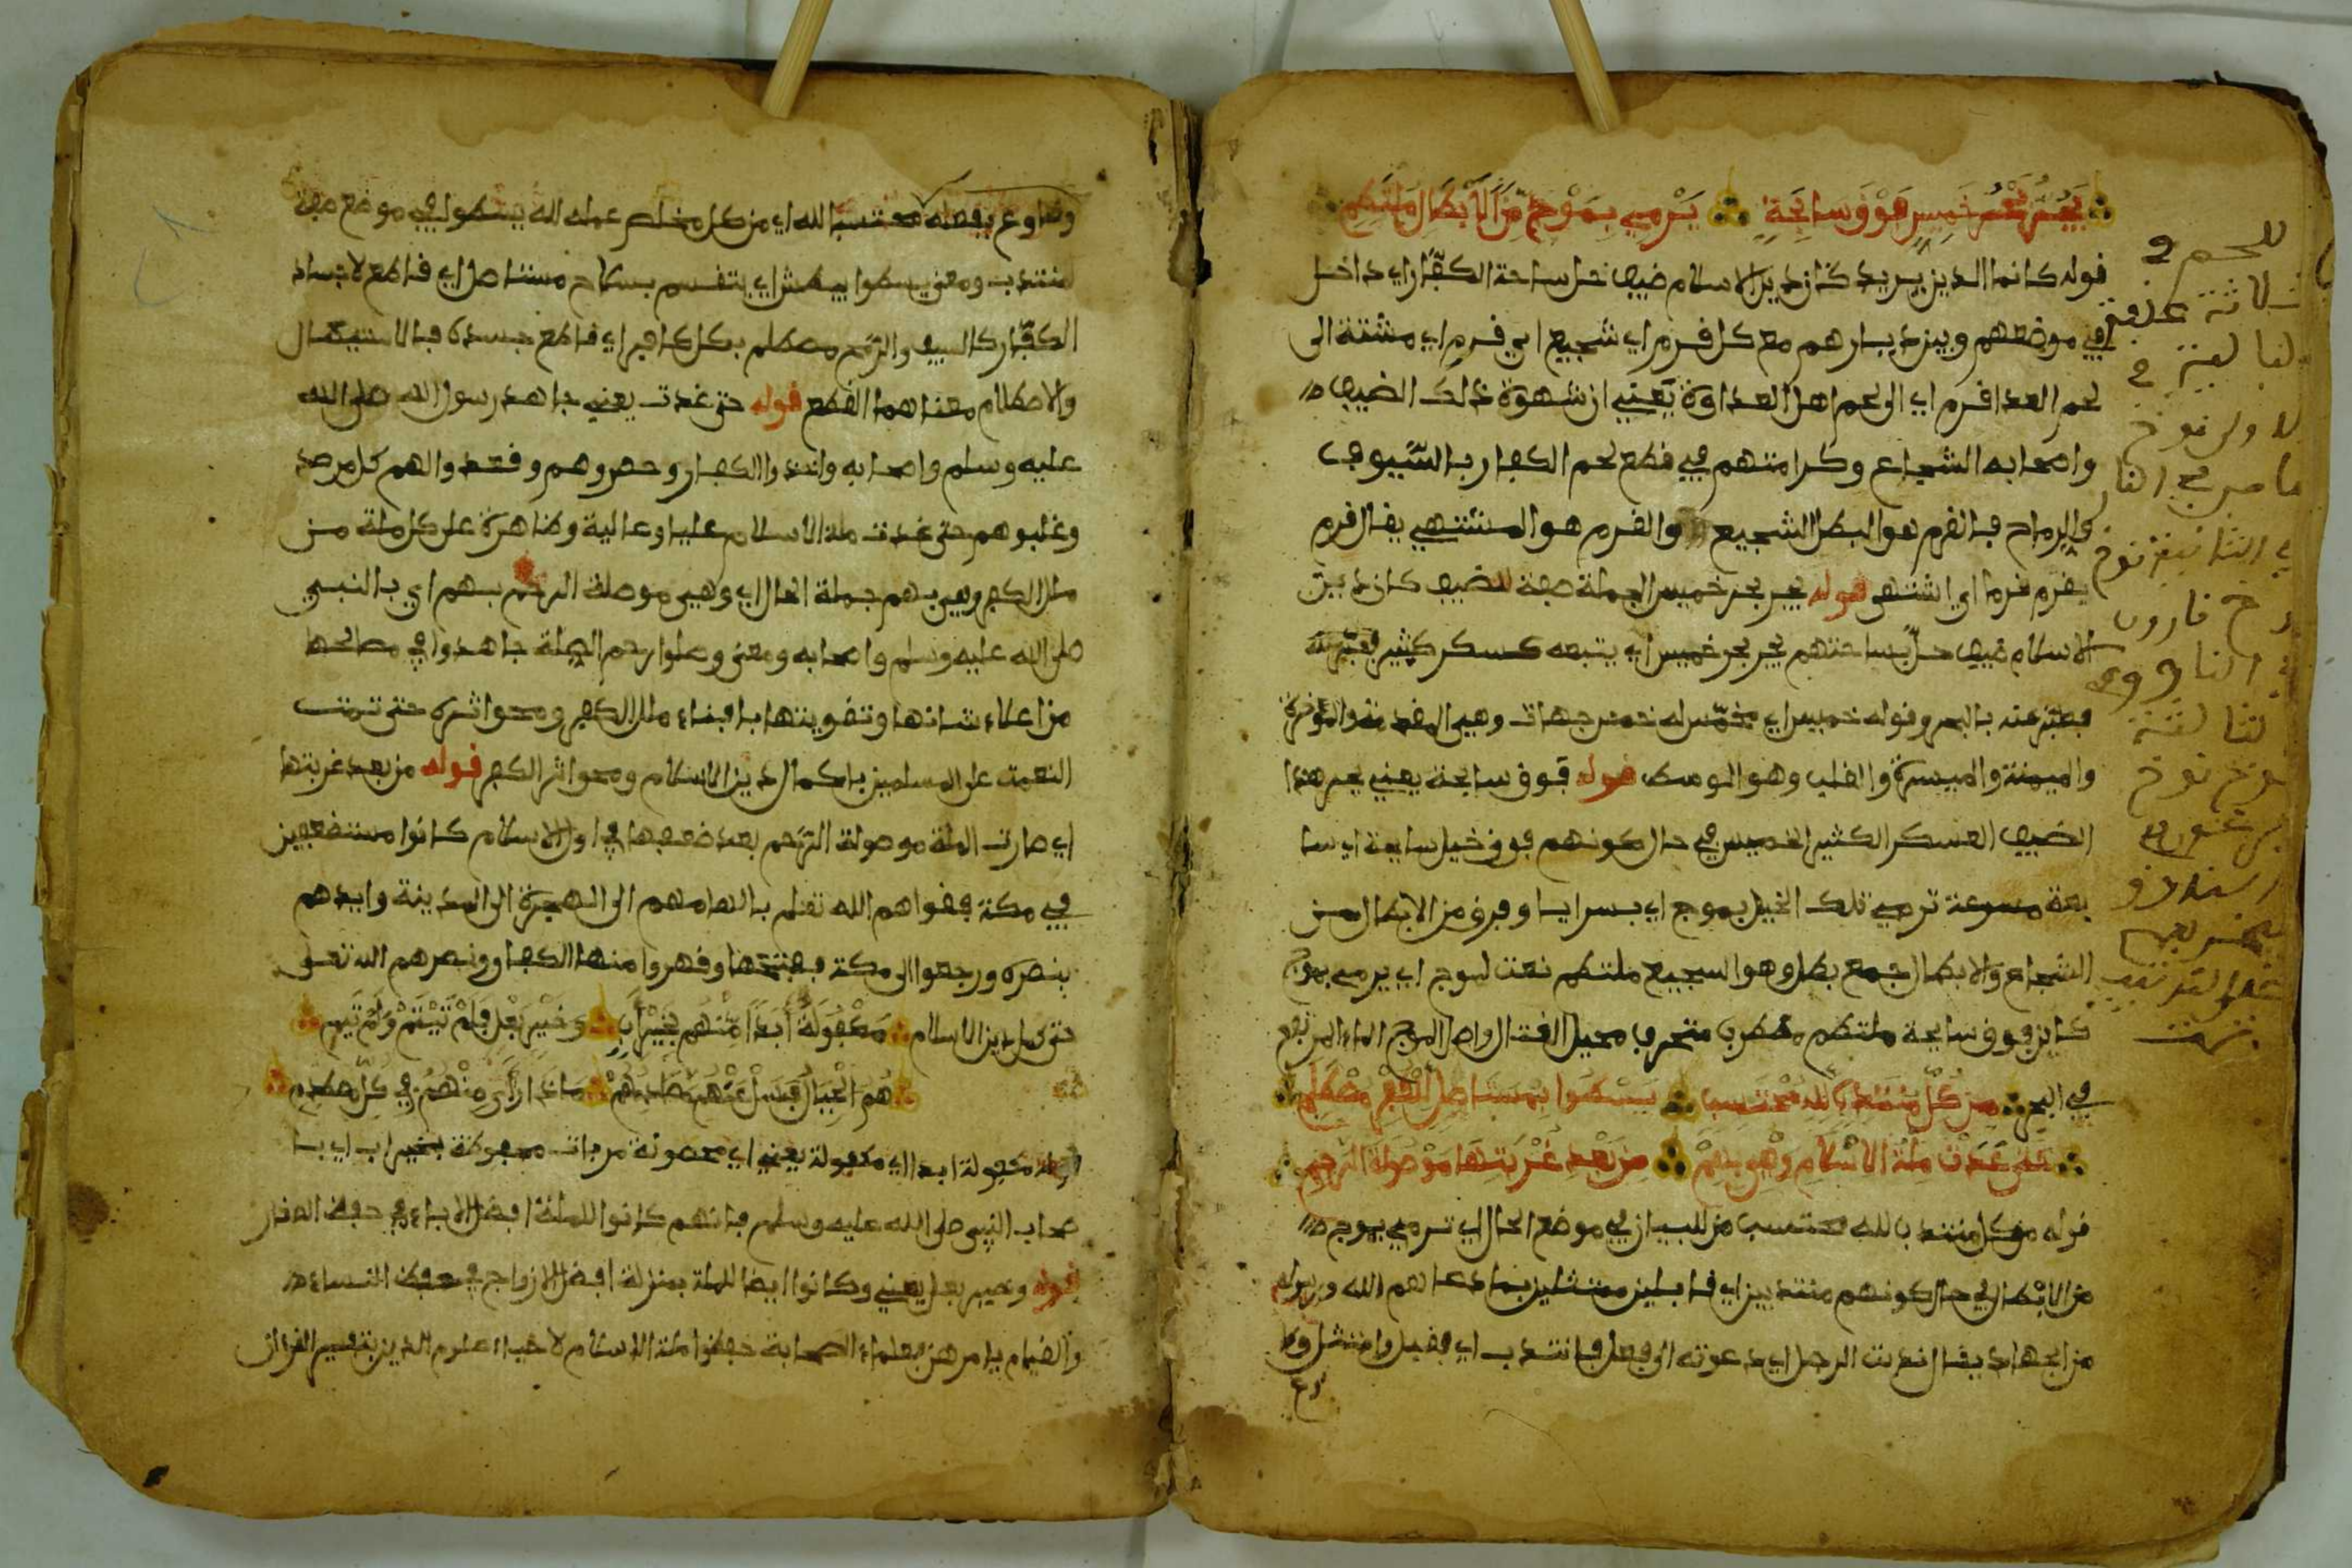 يَجُرُّ بَحْرَ خَمِيسٍ فَوْقَ سَابِحَةٍ يَرْمِي بِمَوْجٍ مِّنَ الْأَبْطَالِ مُلْتَطِمِ
قوله كانما الدين يريد كان دين الاسلام ضيف حل ساحة الكفار اي داخل
في موضعهم وبين ديارهم مع كل قرم اي شجيع اي قرم اي مشتة الى
لحم العدا قرم اي الى لحم اهل العداوة يعني ان شهوة ذلك الضيف
واصحابه الشجاع وكرامتهم في قطع لحم الكفار بالسيوف
والرماح فالقرم هو البطل الشجيع والقرم هو المشتهي يقال قرم
يقرم قرما اي اشتهى قوله يجر بحر خميس الجملة صفة للضيف كان دين
الاسلام ضيف حل بساحتهم يجر بحر خميس اي يتبعه كسكر كثير
فعبر عنه بالبحر وقوله خميس اي مخمس له خمس جهات وهي المقدمة والمؤخرة
والميمنة والميسرة والقلب وهو الوسط قوله فوق سابحة يعني يجر هذا
الضيف العسكر الكثير الخميس في حال كونهم فوق خيل سابحة اي سا
بعة مسرعة ترمي تلك الخيل بموج اي بسرايا وفرق من الابطال من
الشجاع والابطال جمع بطل وهو السجيع ملتطم نعت لموج اي يرمي بموج
كاين فوق سابحة ملتطم مضطرب متحرب محيل القتال واصل الموج الماء المرتفع
في البحر مِن كُلِّ مُنْتَدِبٍ لِلَّهِ مُحْتَسِبٍ يَسْطُوا بِمُسْتَأْصِلٍ لِلْكُفْرِ مُصْطَلِمِ
حَتَّى غَدَتْ مِلَّةُ الْإِسْلَامِ وَهْيَ بِهِمْ مِن بَعْدِ غُرْبَتِهَا مَوْصُولَةَ الرَّحِمِ
قوله من كل منتدب لله محتسب من للبيان في موضع الحال اي ترمي بموج
من الابطال في حال كونهم منتدبين اي قابلين ممتثلين بما دعاهم الله ورسوله
من الجهاد يقال ندبت الرجل اي دعوته الى فعل فانتدب اي فقبل وامتثل وطا
وطاوع بفعله محتسبا لله اي من كل مخلص عمله لله يسطوا في موضع صفة
منتدب ومعنى يسطوا يبطش اي ينتقم بسلاح مستاصل اي قاطع لاجساد
الكفار كالسيف والرمح مصطلم بكل كافر اي قاطع جسده فالاستيصال
والاصطلام معناهما القطع قوله حتى غدت يعني جاهد رسول الله صلى الله
عليه وسلم واصحابه واشدوا الكفار وحصروهم وقعدوا لهم كل مرصد
وغلبوهم حتى غدت ملة الاسلام عليا وعالية وظاهرة على كل ملة من
ملل الكفر وهي بهم جملة الحال اي وهي موصلة الرحم بهم اي بالنبي
صلى الله عليه وسلم واصحابه ومعنى وصلوا رحم الملة جاهدوا في مصالحها
من اعلاء شانها وتقويتها بافناء ملل الكفر ومحو اثره حتى تمت
النعمت على المسلمين باكمال دين الاسلام ومحو اثر الكفر قوله من بعد غربتها
اي صارت الملة موصولة الرحم بعد ضعفها في اول الاسلام كانوا مستضعفين
في مكة فقواهم الله تعلى بالهامهم الى الهجرة الى المدينة وايدهم
بنصره ورجعوا الى مكة ففتحها وقهروا منها الكفار ونصرهم الله تعلى
حتى كمل دين الاسلام مَكْفُولَةً أَبَدًا مِّنْهُم بِخَيْرِ أَبٍ وَخَيْرِ بَعْلٍ فَلَمْ تَيْتَمْ وَلَمْ تَئِمِ
هُمُ الْجِبَالُ فَسَلْ عَنْهُمْ مُصَادِمَهُمْ مَاذَا رَأَى مِنْهُمُ فِي كُلِّ مُصْطَدَمِ
قوله مكفولة ابدا اي مكفولة يعني اي محصونة مربات محفوظة بخير اب اي با
صحاب النبي صلى الله عليه وسلم فانهم كانوا للملة افضل الاباء في حفظ الصغار
قوله وخير بعل يعني وكانوا ايضا للملة بمنزلة افضل الازواج في حفظ النساء
والقيام بامرهن فعلماء الصحابة حفظوا ملة الاسلام لاحياء علوم الدين بتفسير القران